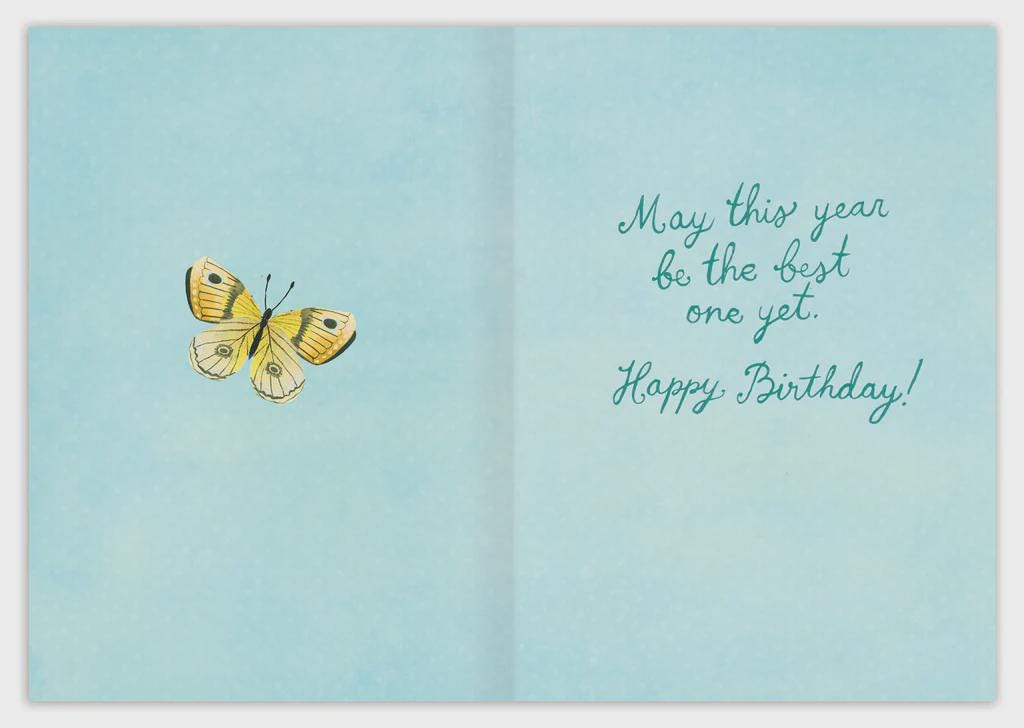 May this year
be the best
one yet.
Happy Birthday!